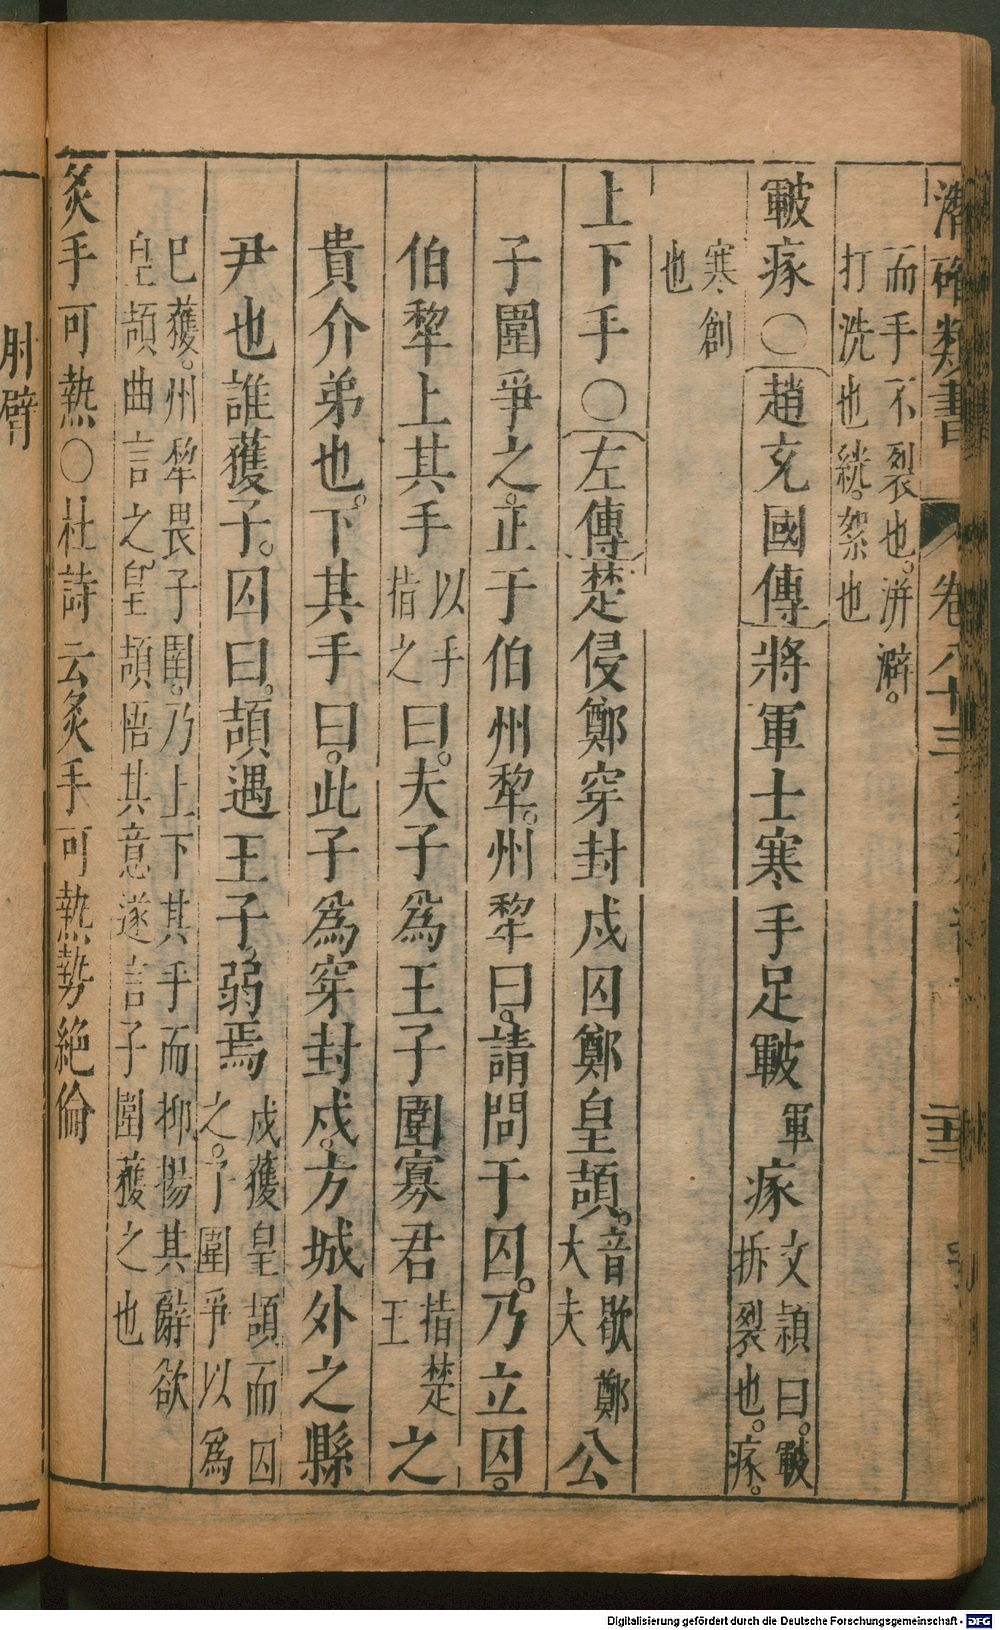 潛確類書 卷八十三
而手不裂也。洴澼。
打洗也絖。絮也
皸瘃〇趙充國傳將軍士寒手足皸軍瘃文穎曰。皸
坼裂也。瘃。
寒創
也
上下手〇左傳楚侵鄭穿封戌囚鄭皇頡。音歇鄭
大夫公
子圍爭之。正于伯州犂。州犂曰。請問于囚。乃立囚。
伯犂上其手以手
指之曰。夫子為王子圍寡君指楚
王之
貴介弟也。下其手曰。此子為穿封戌。方城外之縣
尹也誰獲子。囚曰。頡遇王子。弱焉戌獲皇頡而囚
之。子圍爭以為
已獲。州犂畏子圍。乃上下其手而抑揚其辭欲
皇頡曲言之。皇頡悟其意遂言子圍獲之也
炙手可熱〇杜詩云炙手可熱勢絶倫
肘臂
Digitalisierung gefördert durch die Deutsche Forschungsgemeinschaft - DFG